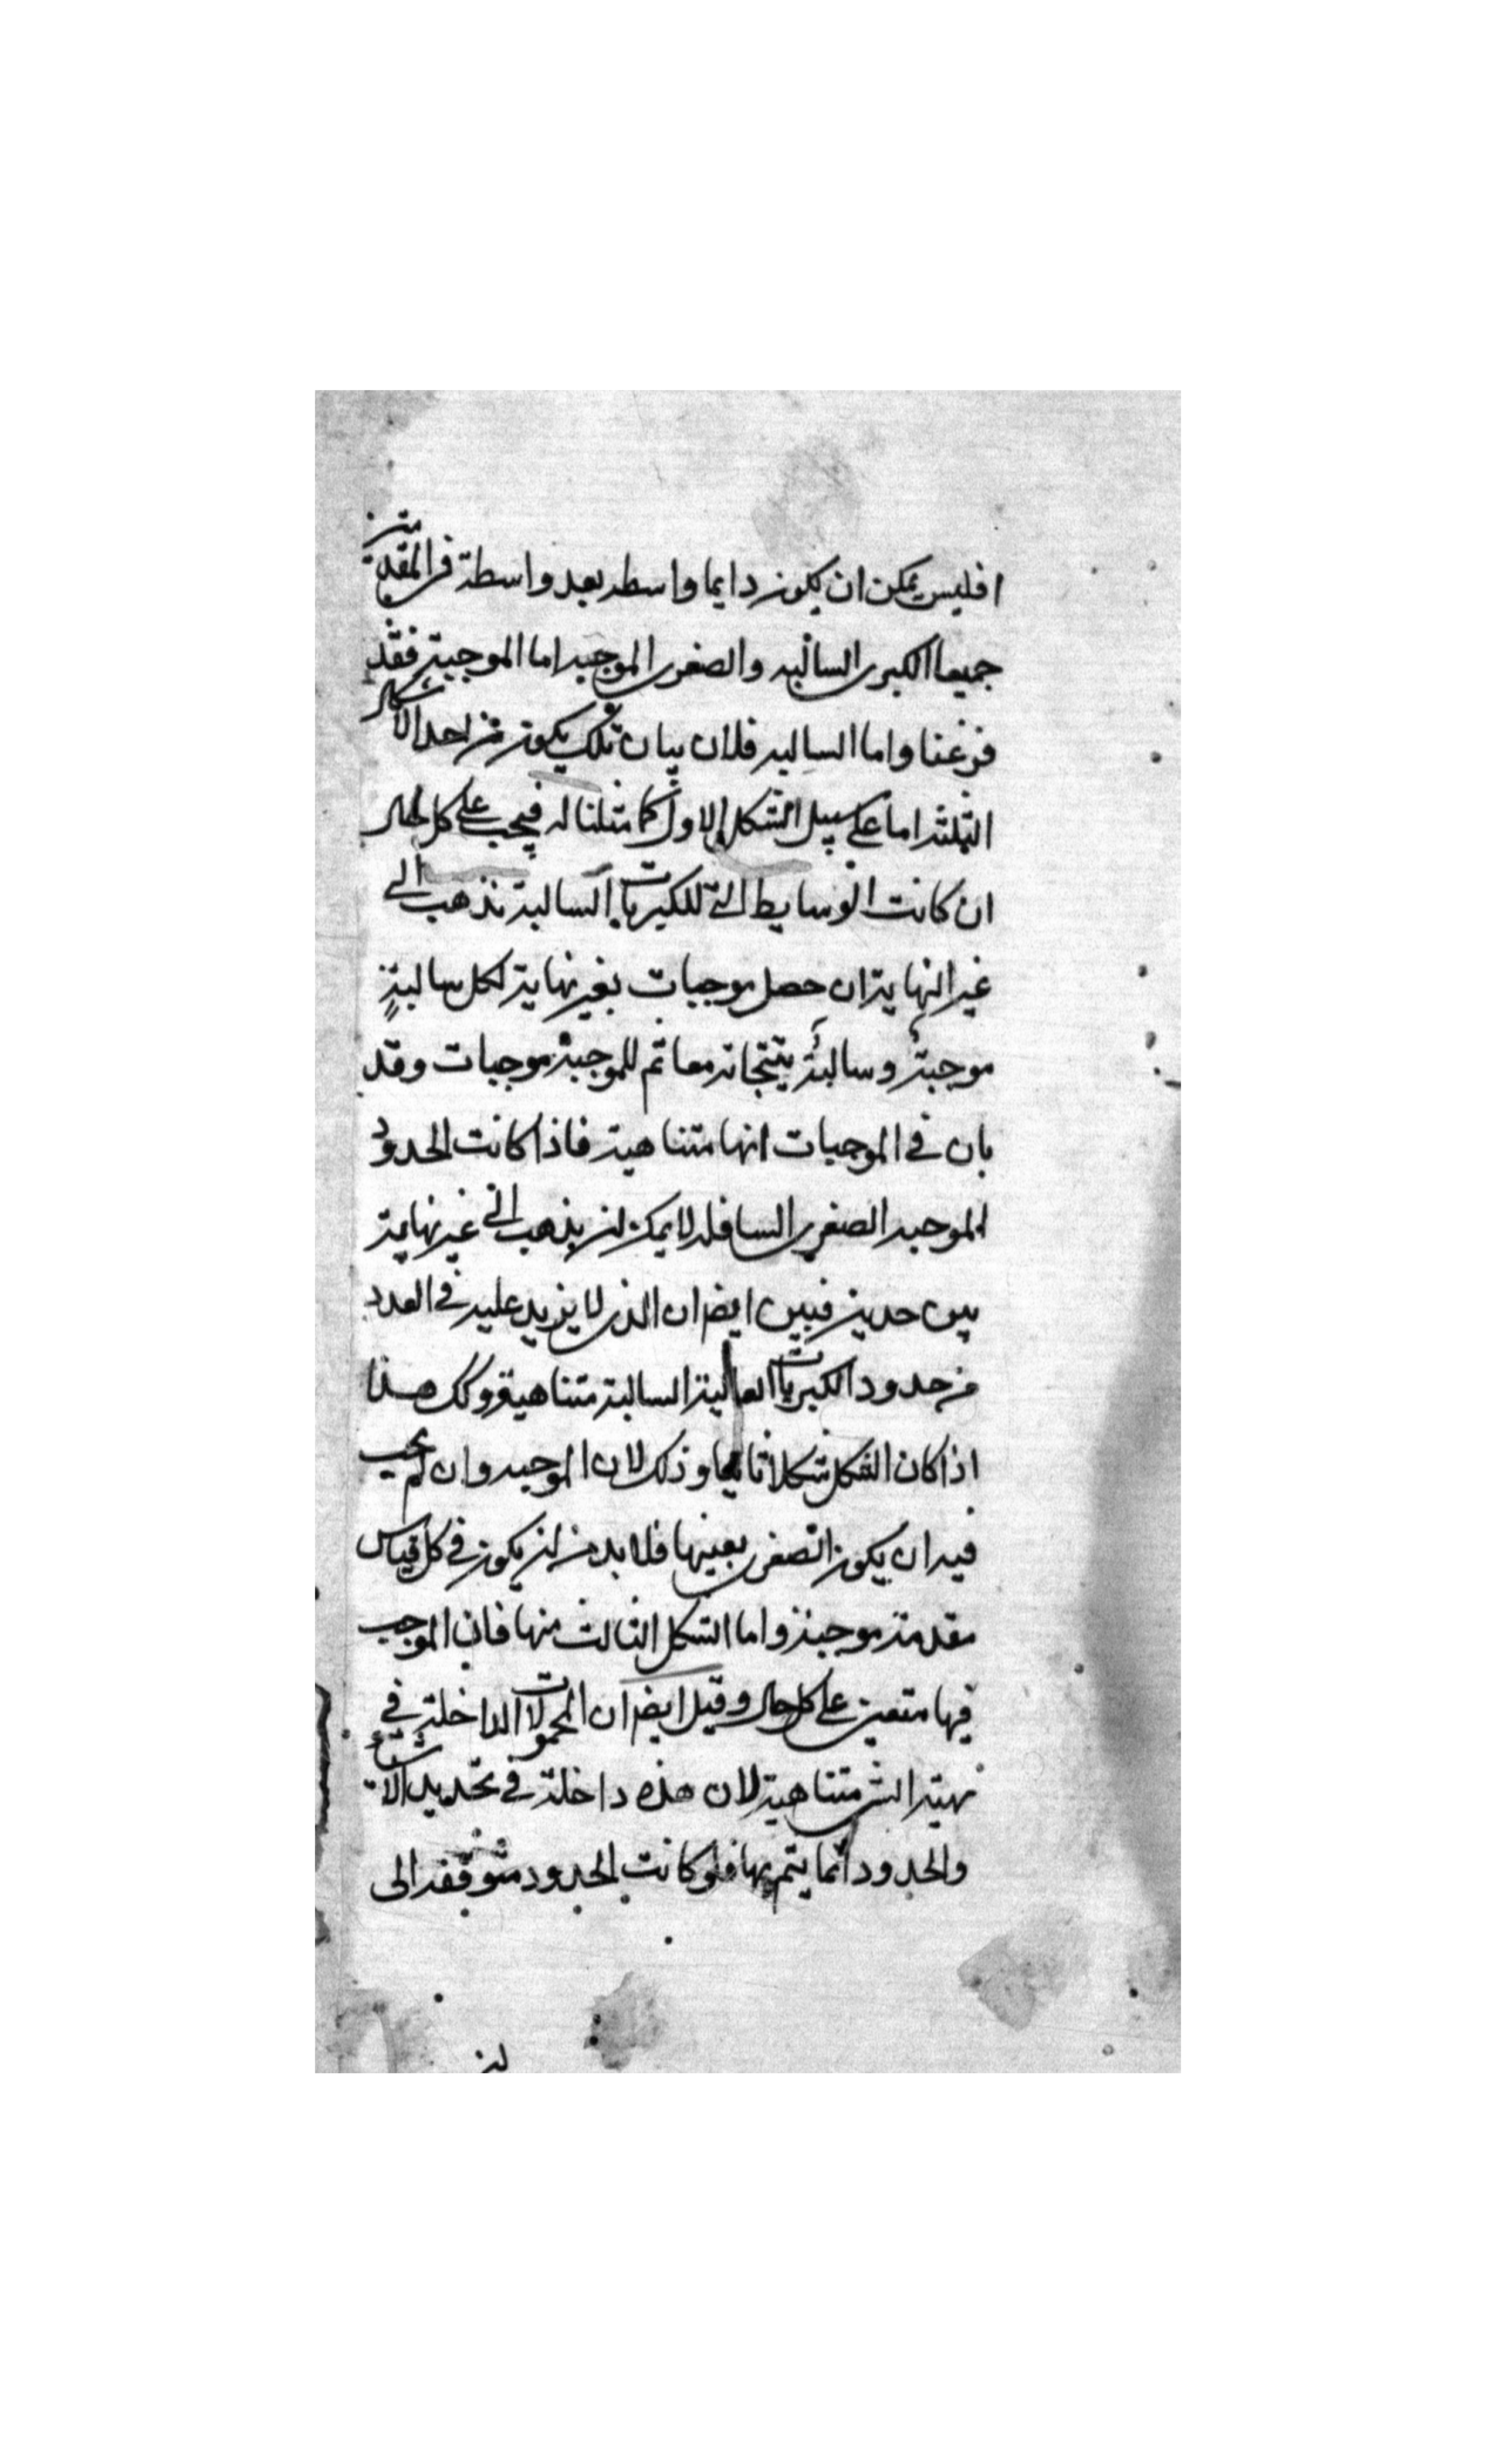 افليس يمكن ان يكون دايما واسطه بعد واسطة في المقدمتين
جميعا الكبرى السالبه والصغرى الموجبه اما الموجبة فقد
فرغنا واما السالبه فلان بيان تلك يكون من احد الاشكال
الثلثه اما على سبيل الشكل الاول كما مثلنا له فيجب على كل حال
ان كانت الوسايط التي للكبريات السالبة تذهب الى
غير النهاية ان حصل موجبات بغير نهاية لكل سالبةٍ
موجبةٌ وسالبةٌ ينتجانه معا ثم للموجبة موجبات وقد
بان في الموجبات انها متناهية فاذا كانت الحدود
الموجبه الصغرى السافله لا يمكن ان يذهب الى غير نهاية
بين حدين فبين ايضا ان الذي لا يزيد عليه في العدد
من حدود الكبريات العالية السالبة متناهية وكك هذا
اذا كان الشكل شكلا ثانيا وذلك لان الموجبه وان لم يجب
فيه ان يكون الصغرى بعينها فلا بد من ان يكون في كل قياس
مقدمة موجبة واما الشكل الثالث منها فان الموجب
فيها متعين على كل حال وقيل ايضا ان المحمولات الداخلة في
مهية الشي متناهية لان هذه داخلة في تحديد الاشياء
والحدود انما يتم بها فلو كانت الحدود متوقفه الى